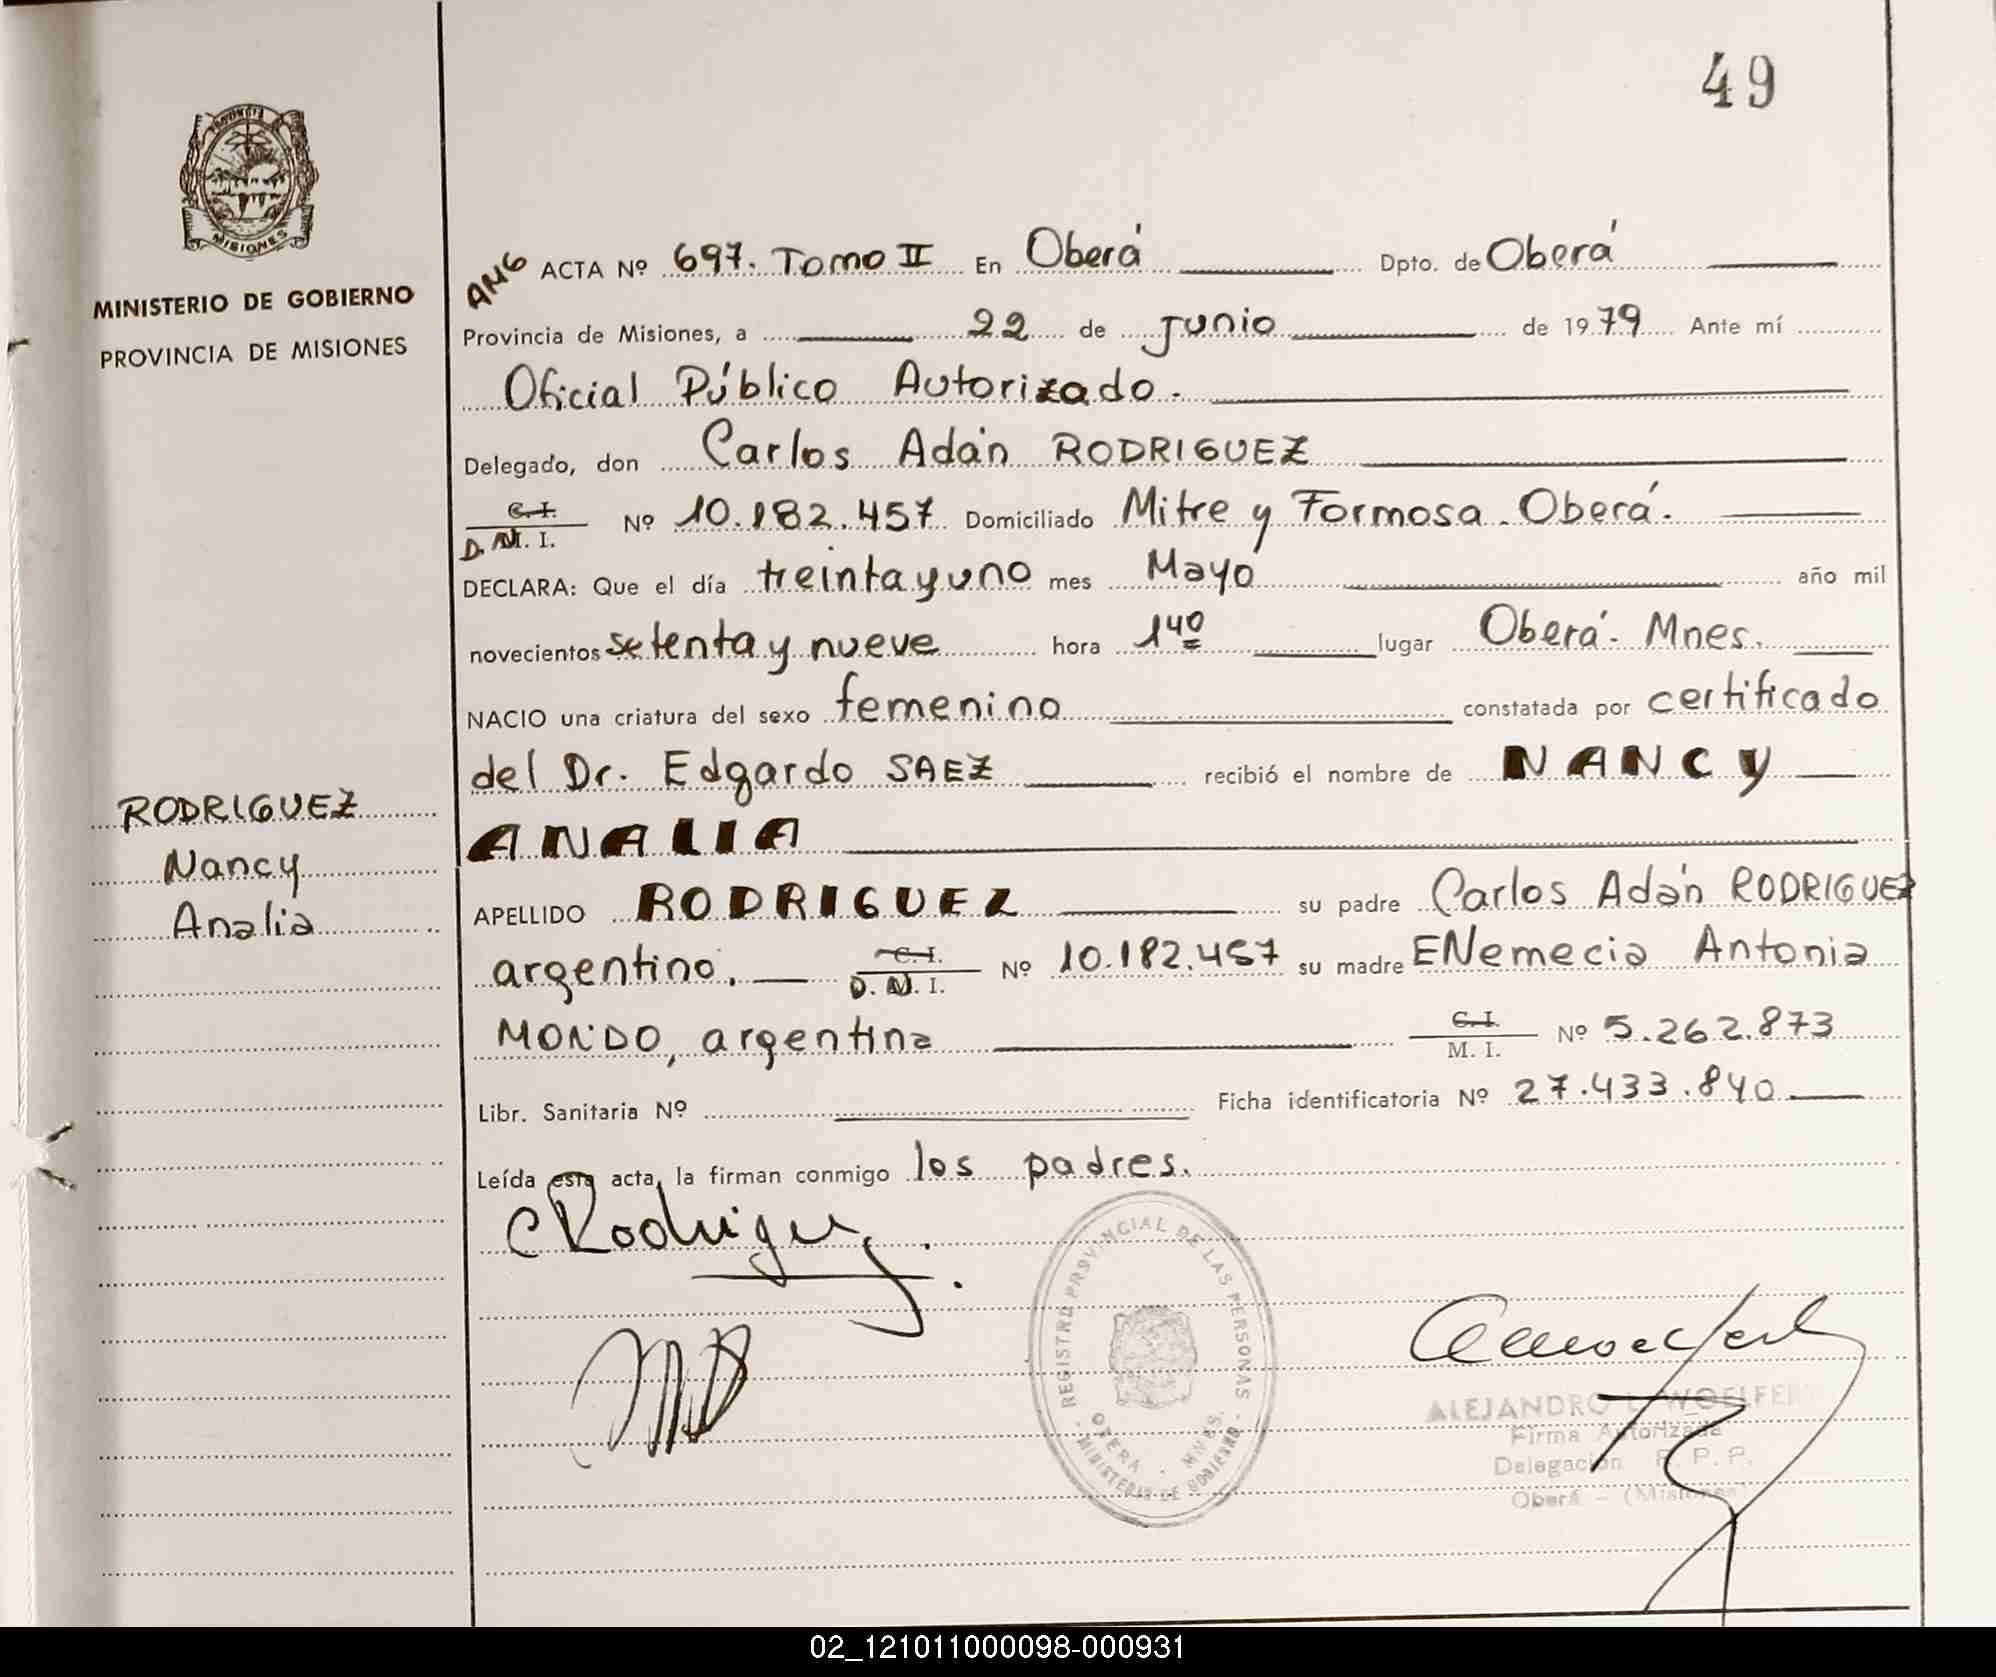 49
PROVINCIA
MISIONES
MINISTERIO DE GOBIERNO
PROVINCIA DE MISIONES
RODRIGUEZ
Nancy
Analia
ANG ACTA Nº 697. Tomo II En Oberá Dpto. de Oberá
Provincia de Misiones, a 22 de junio de 1979 Ante mí
Oficial Público Autorizado.
Delegado, don Carlos Adán RODRIGUEZ
C. I.
D. N. I. Nº 10.182.457 Domiciliado Mitre y Formosa. Oberá.
DECLARA: Que el día treinta y uno mes Mayo año mil
novecientos setenta y nueve hora 1 40 lugar Oberá. Mnes.
NACIO una criatura del sexo femenino constatada por certificado
del Dr. Edgardo SAEZ recibió el nombre de NANCY
ANALIA
APELLIDO RODRIGUEZ su padre Carlos Adán RODRIGUEZ
argentino. C. I.
D. N. I. Nº 10.182.457 su madre ENemecia Antonia
MONDO, argentina C. I.
M. I. Nº 5.262.873
Libr. Sanitaria Nº Ficha identificatoria Nº 27.433.840
Leída esta acta, la firman conmigo los padres.
CRodriguez
REGISTRO PROVINCIAL DE LAS PERSONAS
OBERA - MNES.
MINISTERIO DE GOBIERNO
ALEJANDRO L. WOELFERT
Firma Autorizada
Delegación R. P. P.
Oberá - (Misiones)
02_121011000098-000931